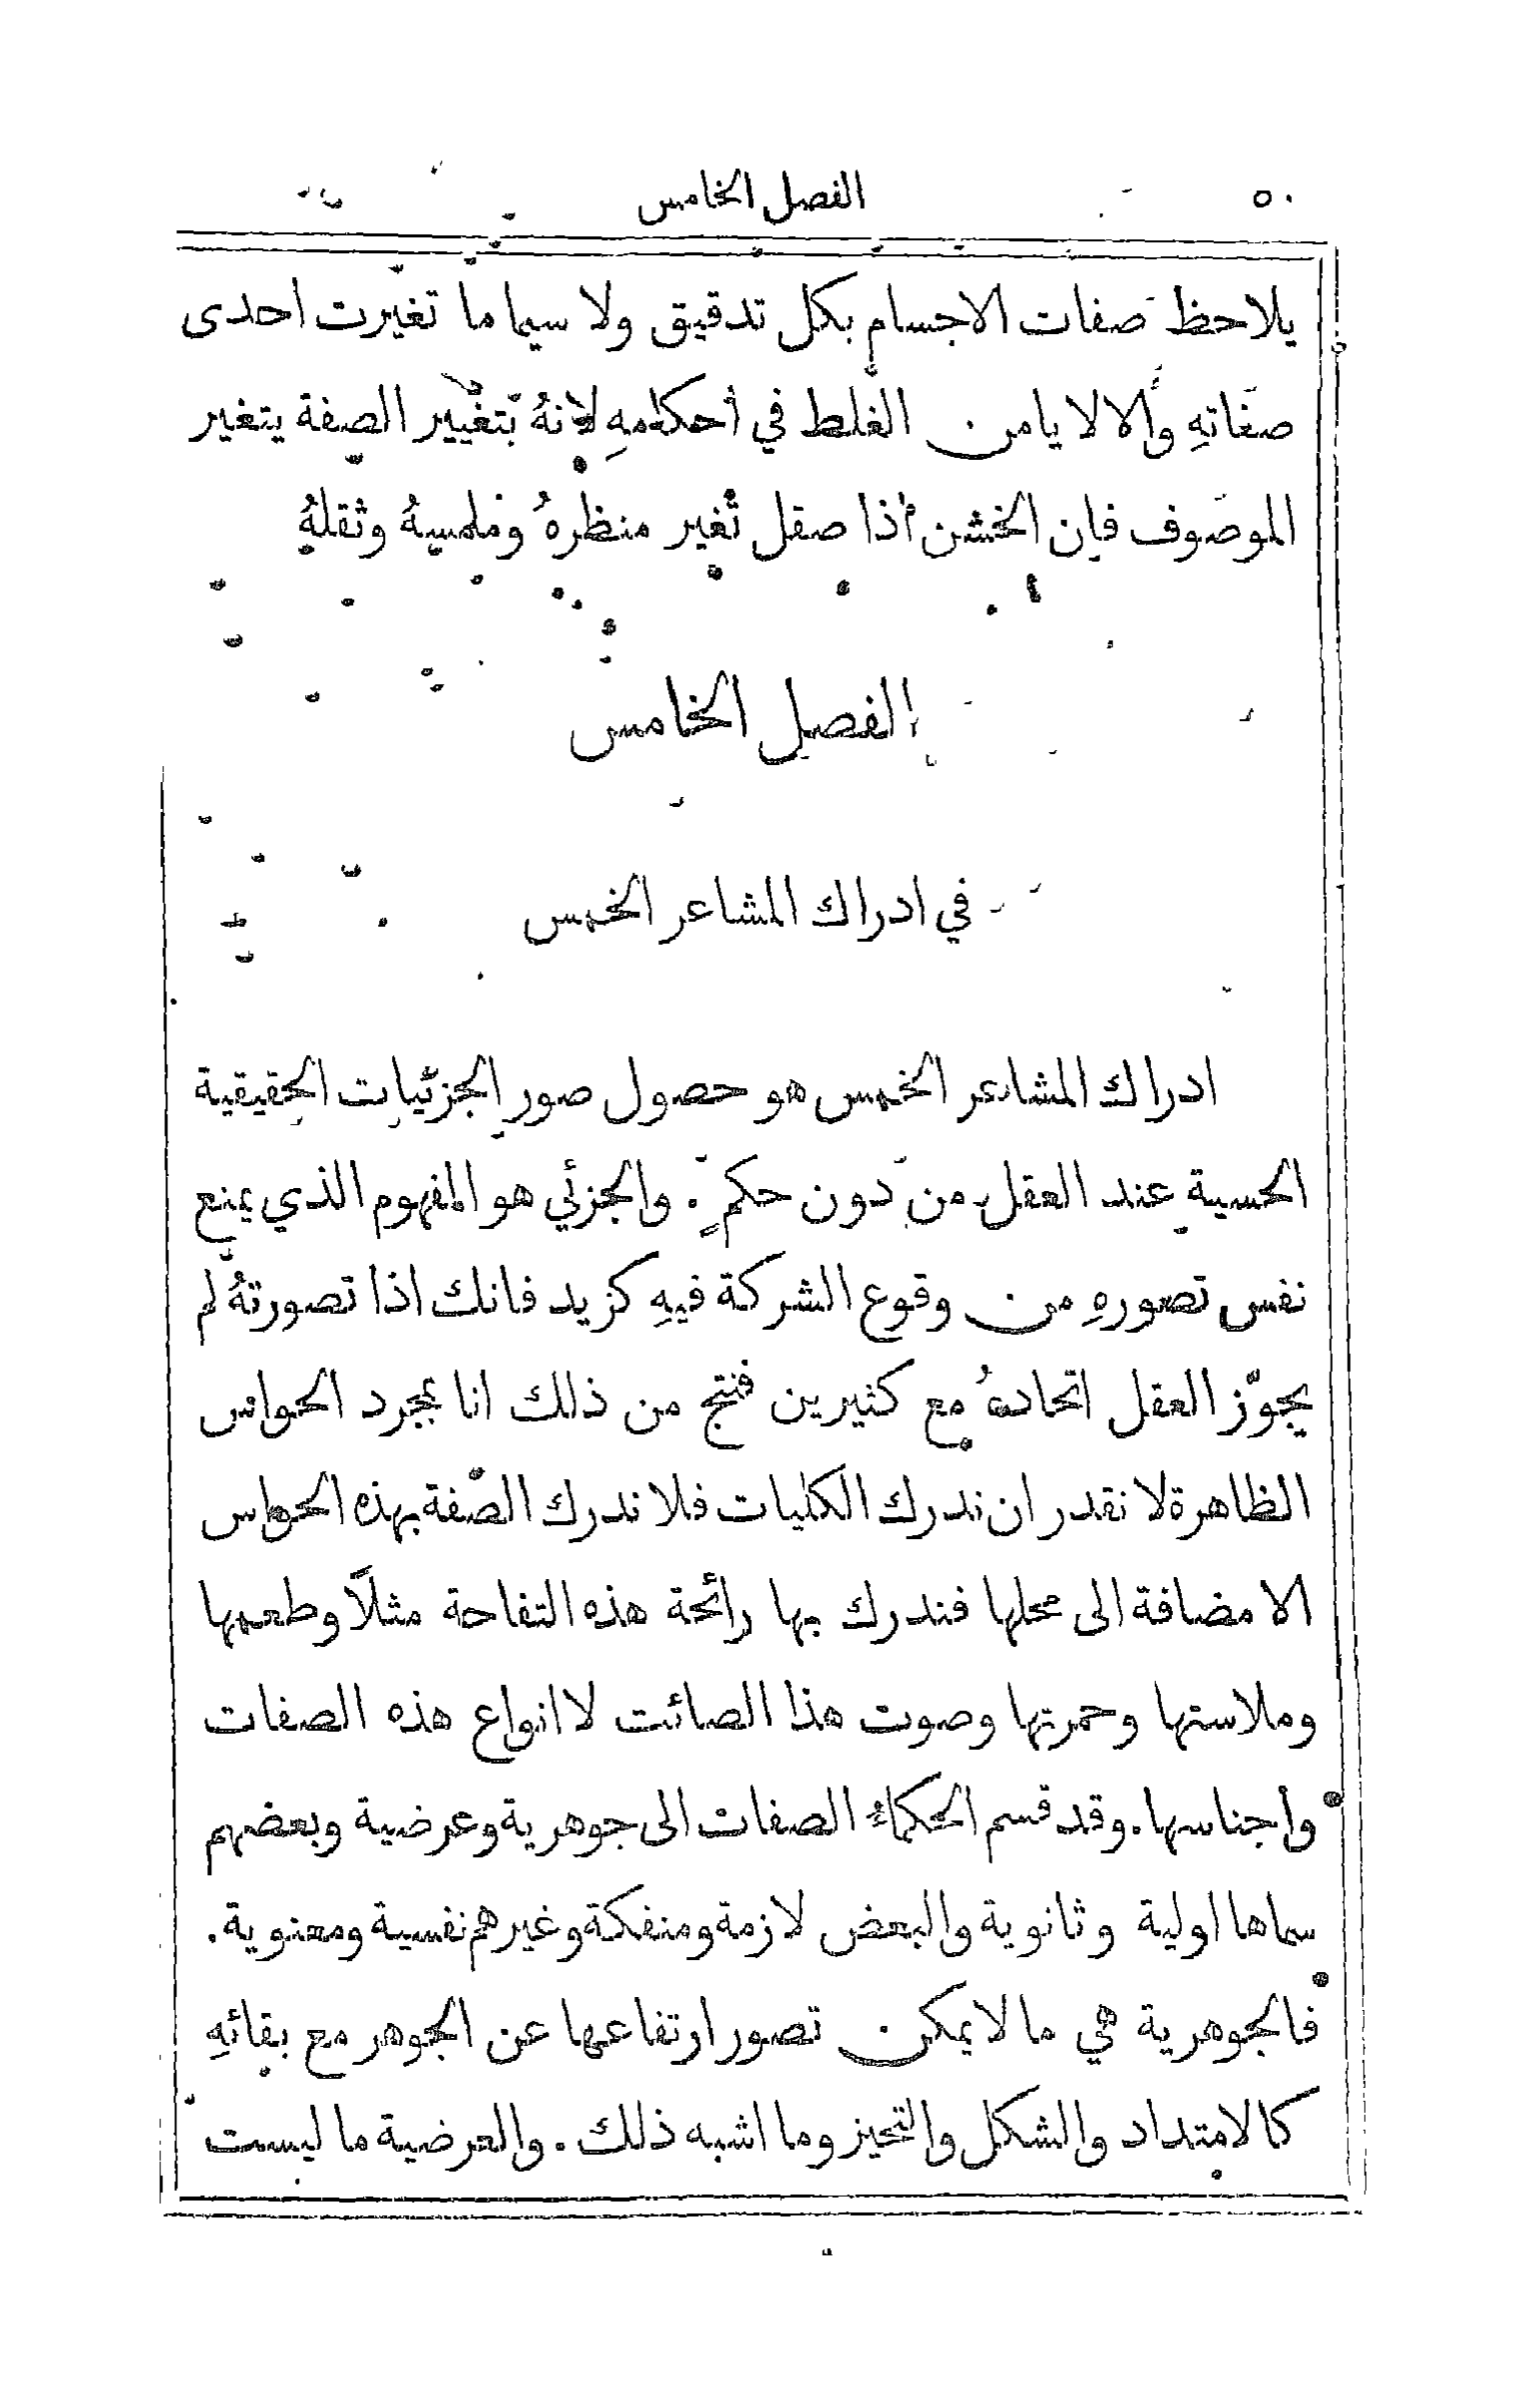 ٥٠ الفصل الخامس
يلاحظ صفات الاجسام بكل تدقيق ولا سيما ما تغيّرت احدى
صفاتهِ والا لا يامن الغلط في أحكامهِ لانهُ بتغيير الصفة يتغير
الموصوف فان الخشن اذا صقل تغير منظرهُ وملمسهُ وثقلهُ
الفصل الخامس
في ادراك المشاعر الخمس
ادراك المشاعر الخمس هو حصول صور الجزئيات الحقيقية
الحسية عند العقل من دون حكم. والجزئي هو المفهوم الذي يمنع
نفس تصورهِ من وقوع الشركة فيهِ كزيد فانك اذا تصورتهُ لم
يجوّز العقل اتحادهُ مع كثيرين فنتج من ذلك انا بمجرد الحواس
الظاهرة لا نقدر ان ندرك الكليات فلا ندرك الصّفة بهذه الحواس
الا مضافة الى محلها فندرك بها رائحة هذه التفاحة مثلاً وطعمها
وملاستها وحمرتها وصوت هذا الصائت لا انواع هذه الصفات
واجناسها. وقد قسم الحكماءُ الصفات الى جوهرية وعرضية وبعضهم
سماها اولية وثانوية والبعض لازمة ومنفكة وغيرهم نفسية ومعنوية.
فالجوهرية هي ما لا يمكن تصور ارتفاعها عن الجوهر مع بقائهِ
كالامتداد والشكل والتحيز وما اشبه ذلك. والعرضية ما ليست